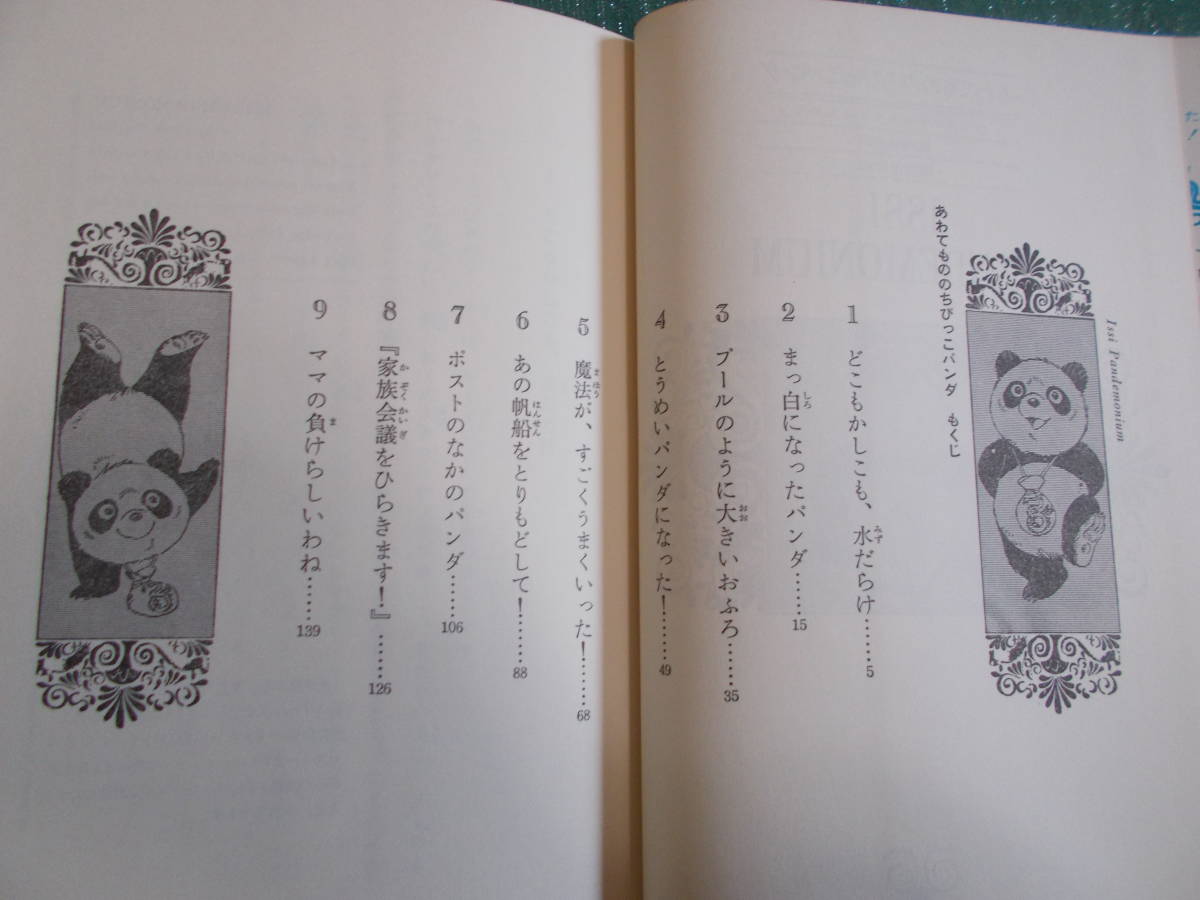 Issi Pandemonium
あわてもののちびっこパンダ　もくじ
1　どこもかしこも、水だらけ……5
みず
2　まっ白になったパンダ……15
しろ
3　プールのように大きいおふろ……35
おお
4　とうめいパンダになった！……49
5　魔法が、すごくうまくいった！……68
まほう
6　あの帆船をとりもどして！……88
はんせん
7　ポストのなかのパンダ……106
8　『家族会議をひらきます！』……126
かぞくかいぎ
9　ママの負けらしいわね……139
ま